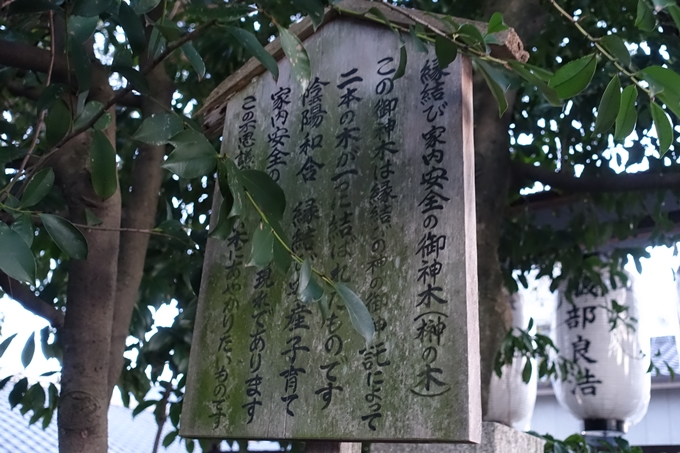 縁結び 家内安全の御神木(榊の木)
この御神木は縁結の神の御神託によって
二本の木が一つに結ばれたものです
陰陽和合 縁結び 安産子育て
家内安全の 現象であります
この不思議 木にあやかりたいものです
部良浩